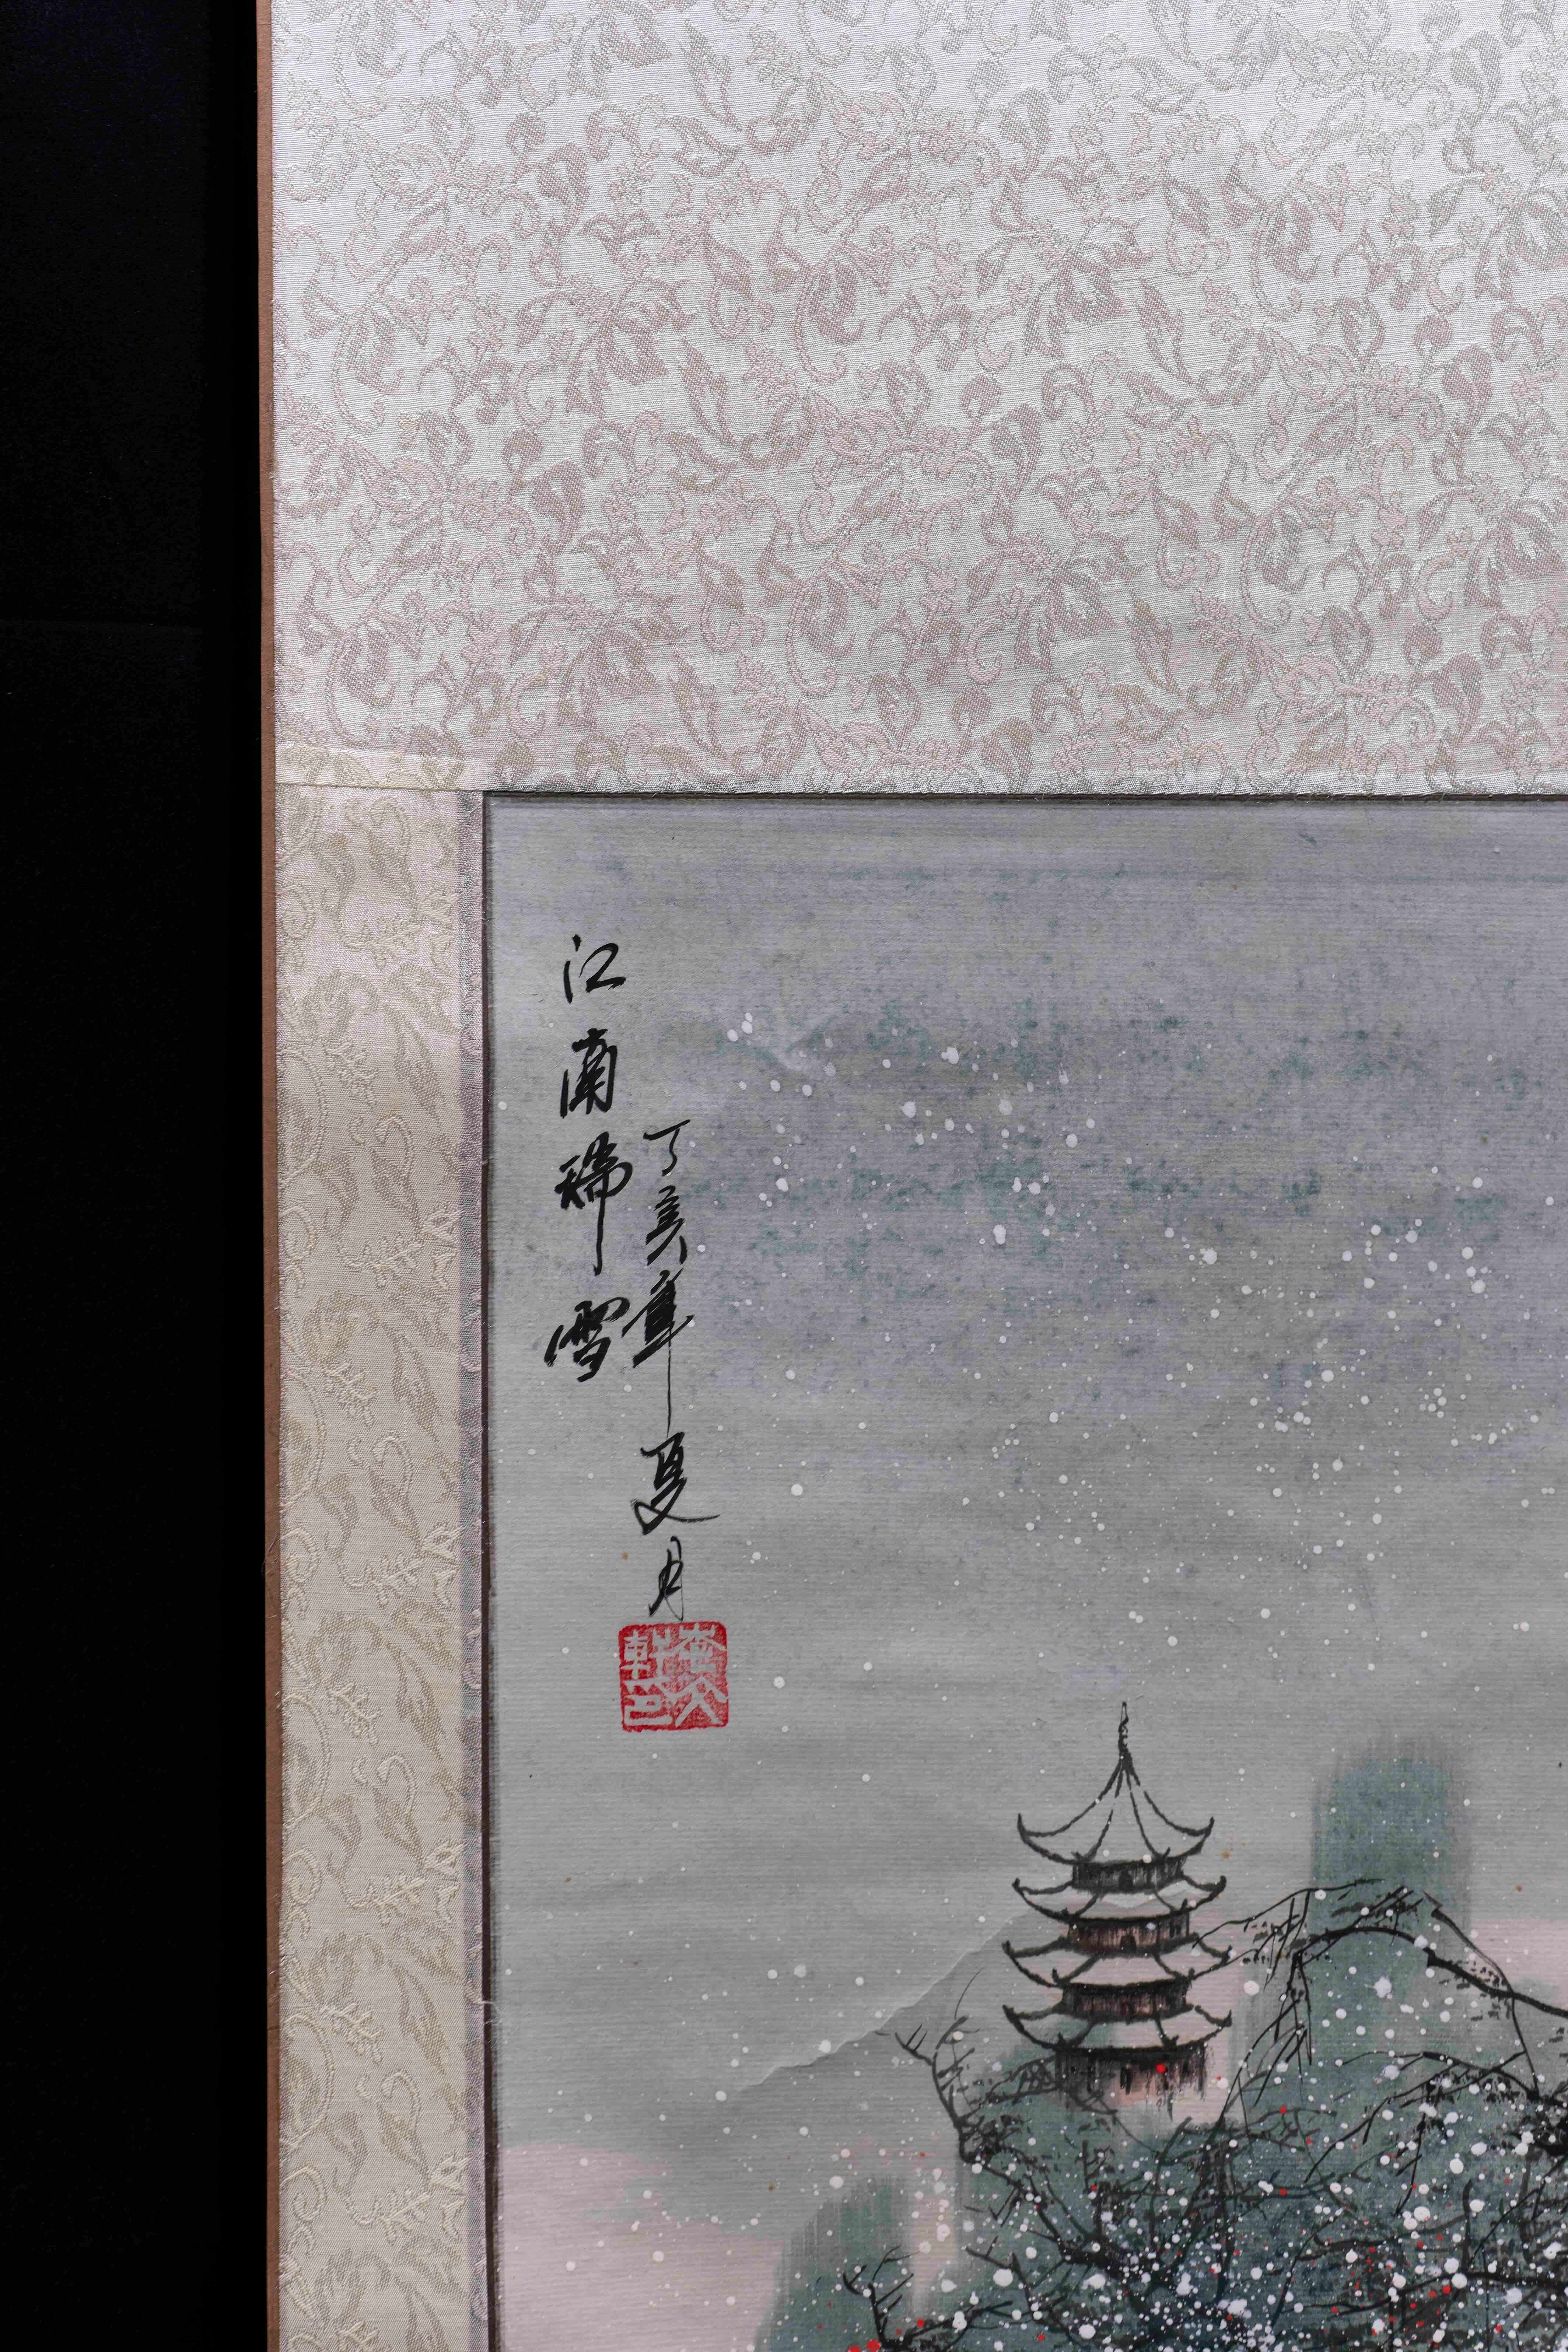 江南瑞雪
丁亥年夏月